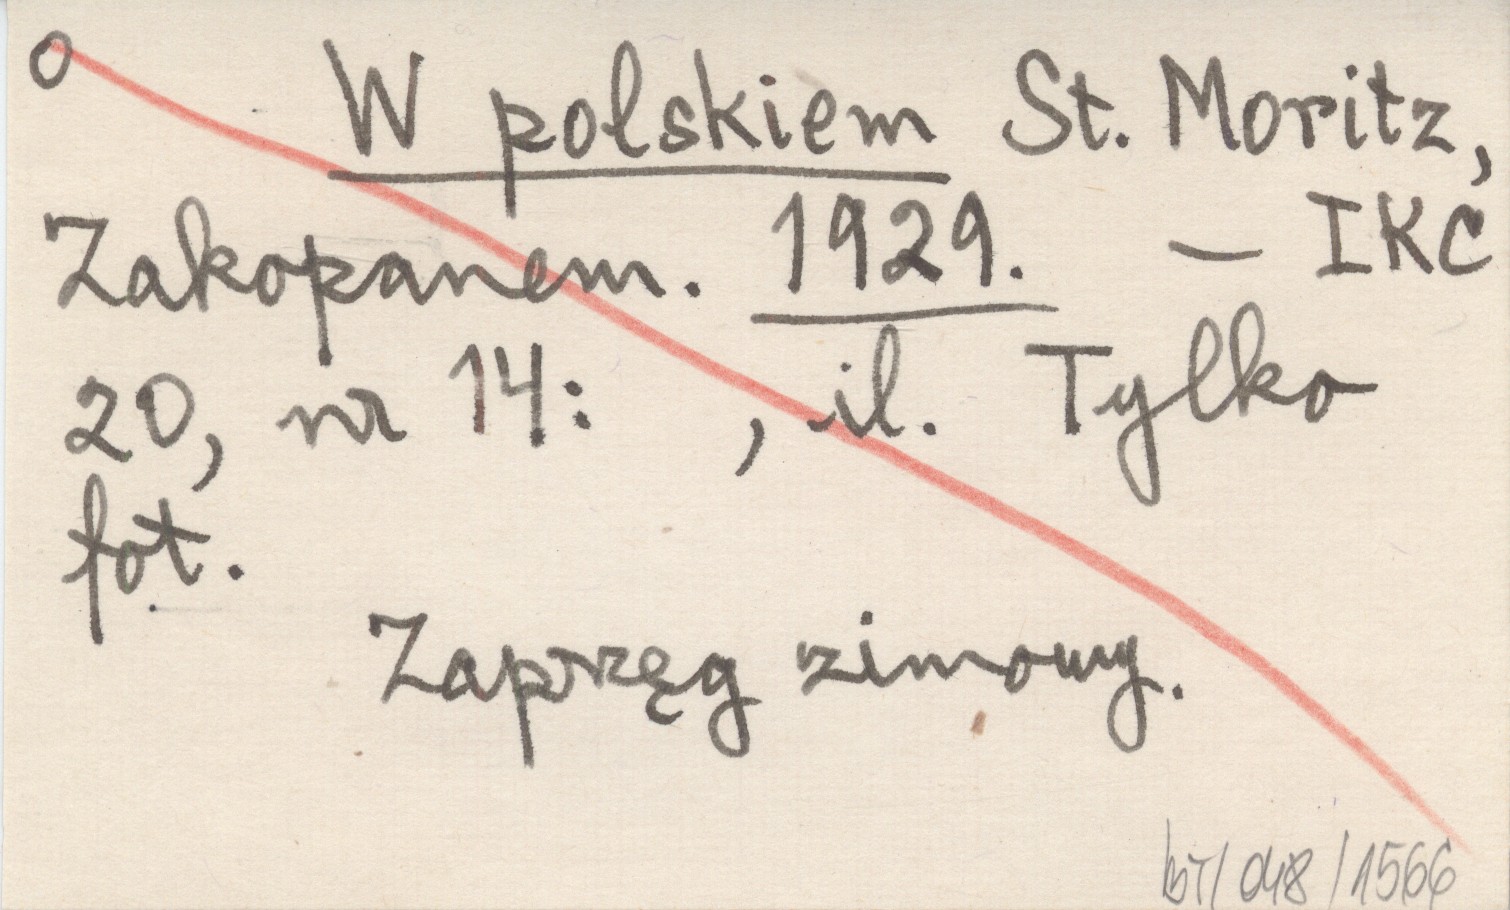 O W polskiem St. Moritz,
Zakopanem. 1929. — IKC
20, nr 14: , il. Tylko
fot.
Zaprzęg zimowy.
bT/048/1566